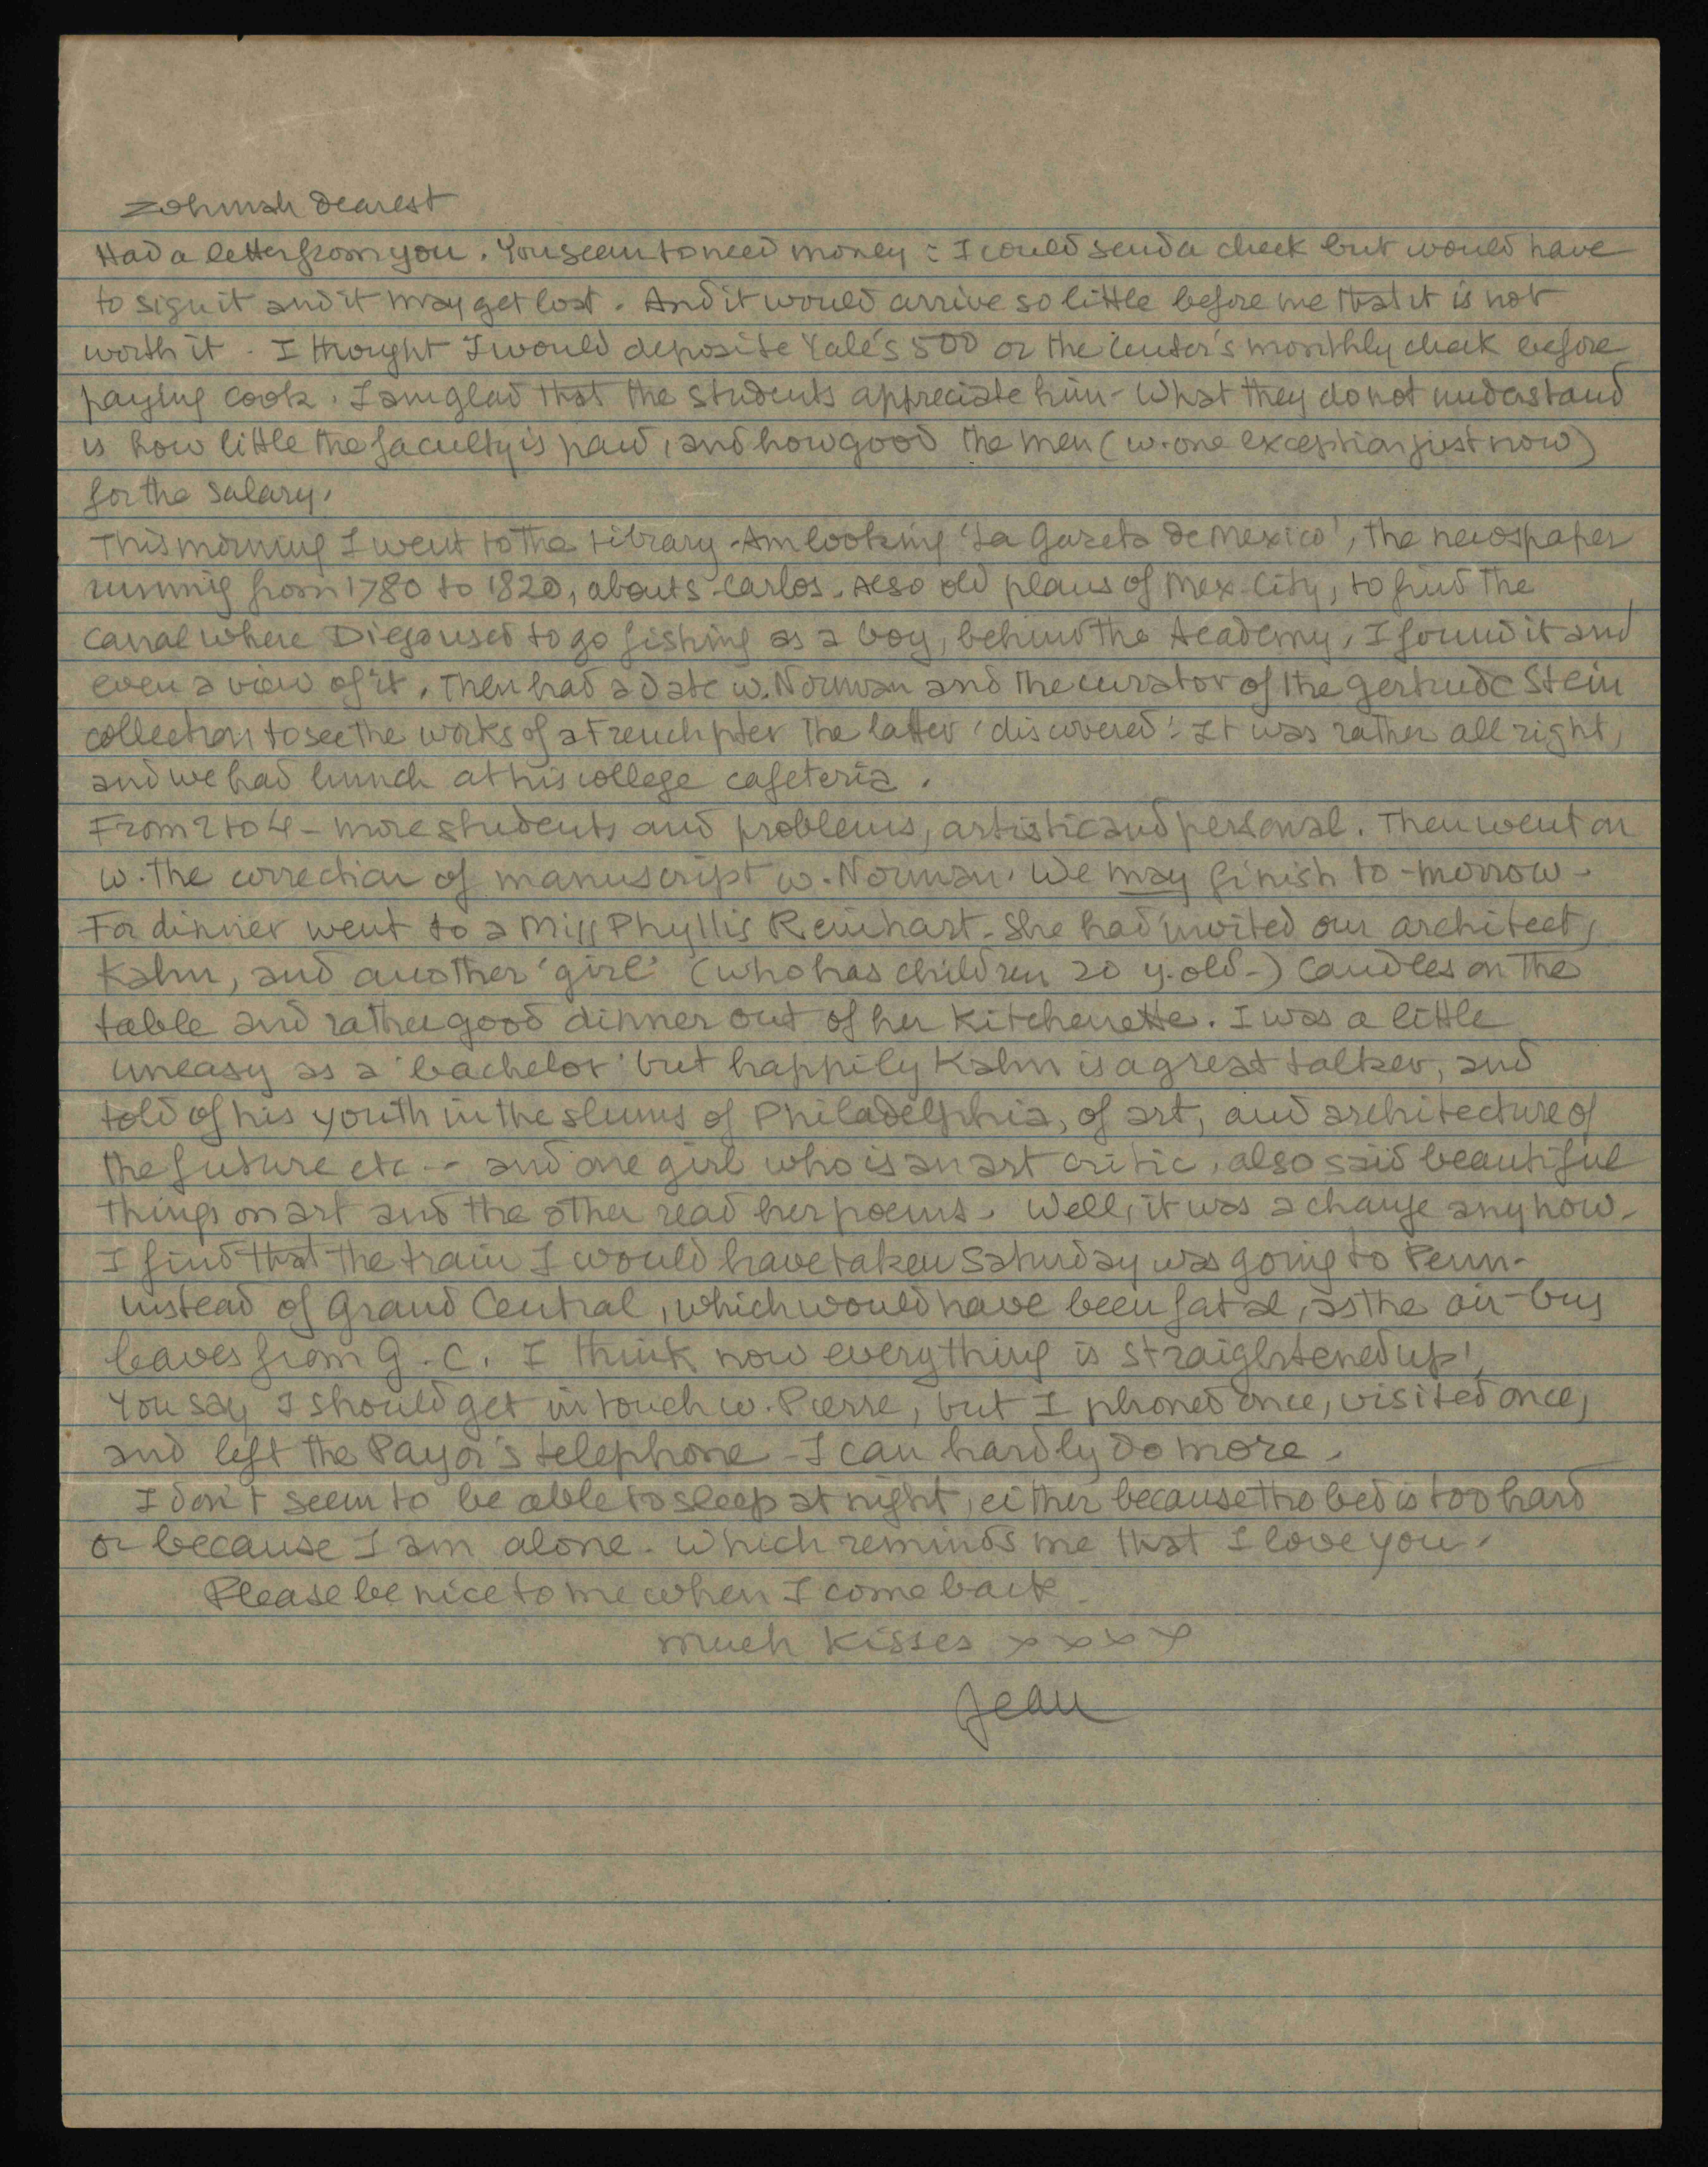 Zohmah dearest
Had a letter from you. You seem to need money: I could send a check but would have
to sign it and it may get lost. And it would arrive so little before me that it is not
worth it. I thought I would deposite Yale's 500 or the Center's monthly check before
paying Cook. I am glad that the students appreciate him. What they do not understand
is how little the faculty is paid, and how good the men (w. one exception just now)
for the salary.
This morning I went to the Library. Am looking 'La Gazeta de Mexico', the newspaper
running from 1780 to 1820, about S. Carlos. Also old plans of Mex. City, to find the
canal where Diego used to go fishing as a boy, behind the Academy. I found it and
even a view of it. Then had a date w. Norman and the curator of the Gertrude Stein
collection to see the works of a French pter the latter 'discovered'. It was rather all right,
and we had lunch at his college cafeteria.
From 2 to 4 - more students and problems, artistic and personal. Then went on
w. the correction of manuscript w. Norman. We may finish to-morrow.
For dinner went to a Miss Phyllis Reinhart. She had invited our architect,
Kahn, and another 'girl' (who has children 20 y. old-) Candles on the
table and rather good dinner out of her Kitchenette. I was a little
uneasy as a 'bachelor' but happily Kahn is a great talker, and
told of his youth in the slums of Philadelphia, of art, and architecture of
the future etc -- and one girl who is an art critic, also said beautiful
things on art and the other read her poems. Well, it was a change anyhow.
I find that the train I would have taken Saturday was going to Penn-
instead of Grand Central, which would have been fatal, as the air-bus
leaves from G.C. I think now everything is 'straightened up'.
You say I should get in touch w. Pierre, but I phoned once, visited once,
and left the Payor's telephone - I can hardly do more.
I don't seem to be able to sleep at night, either because the bed is too hard
or because I am alone. Which reminds me that I love you.
Please be nice to me when I come back.
much kisses x x x x
Jean